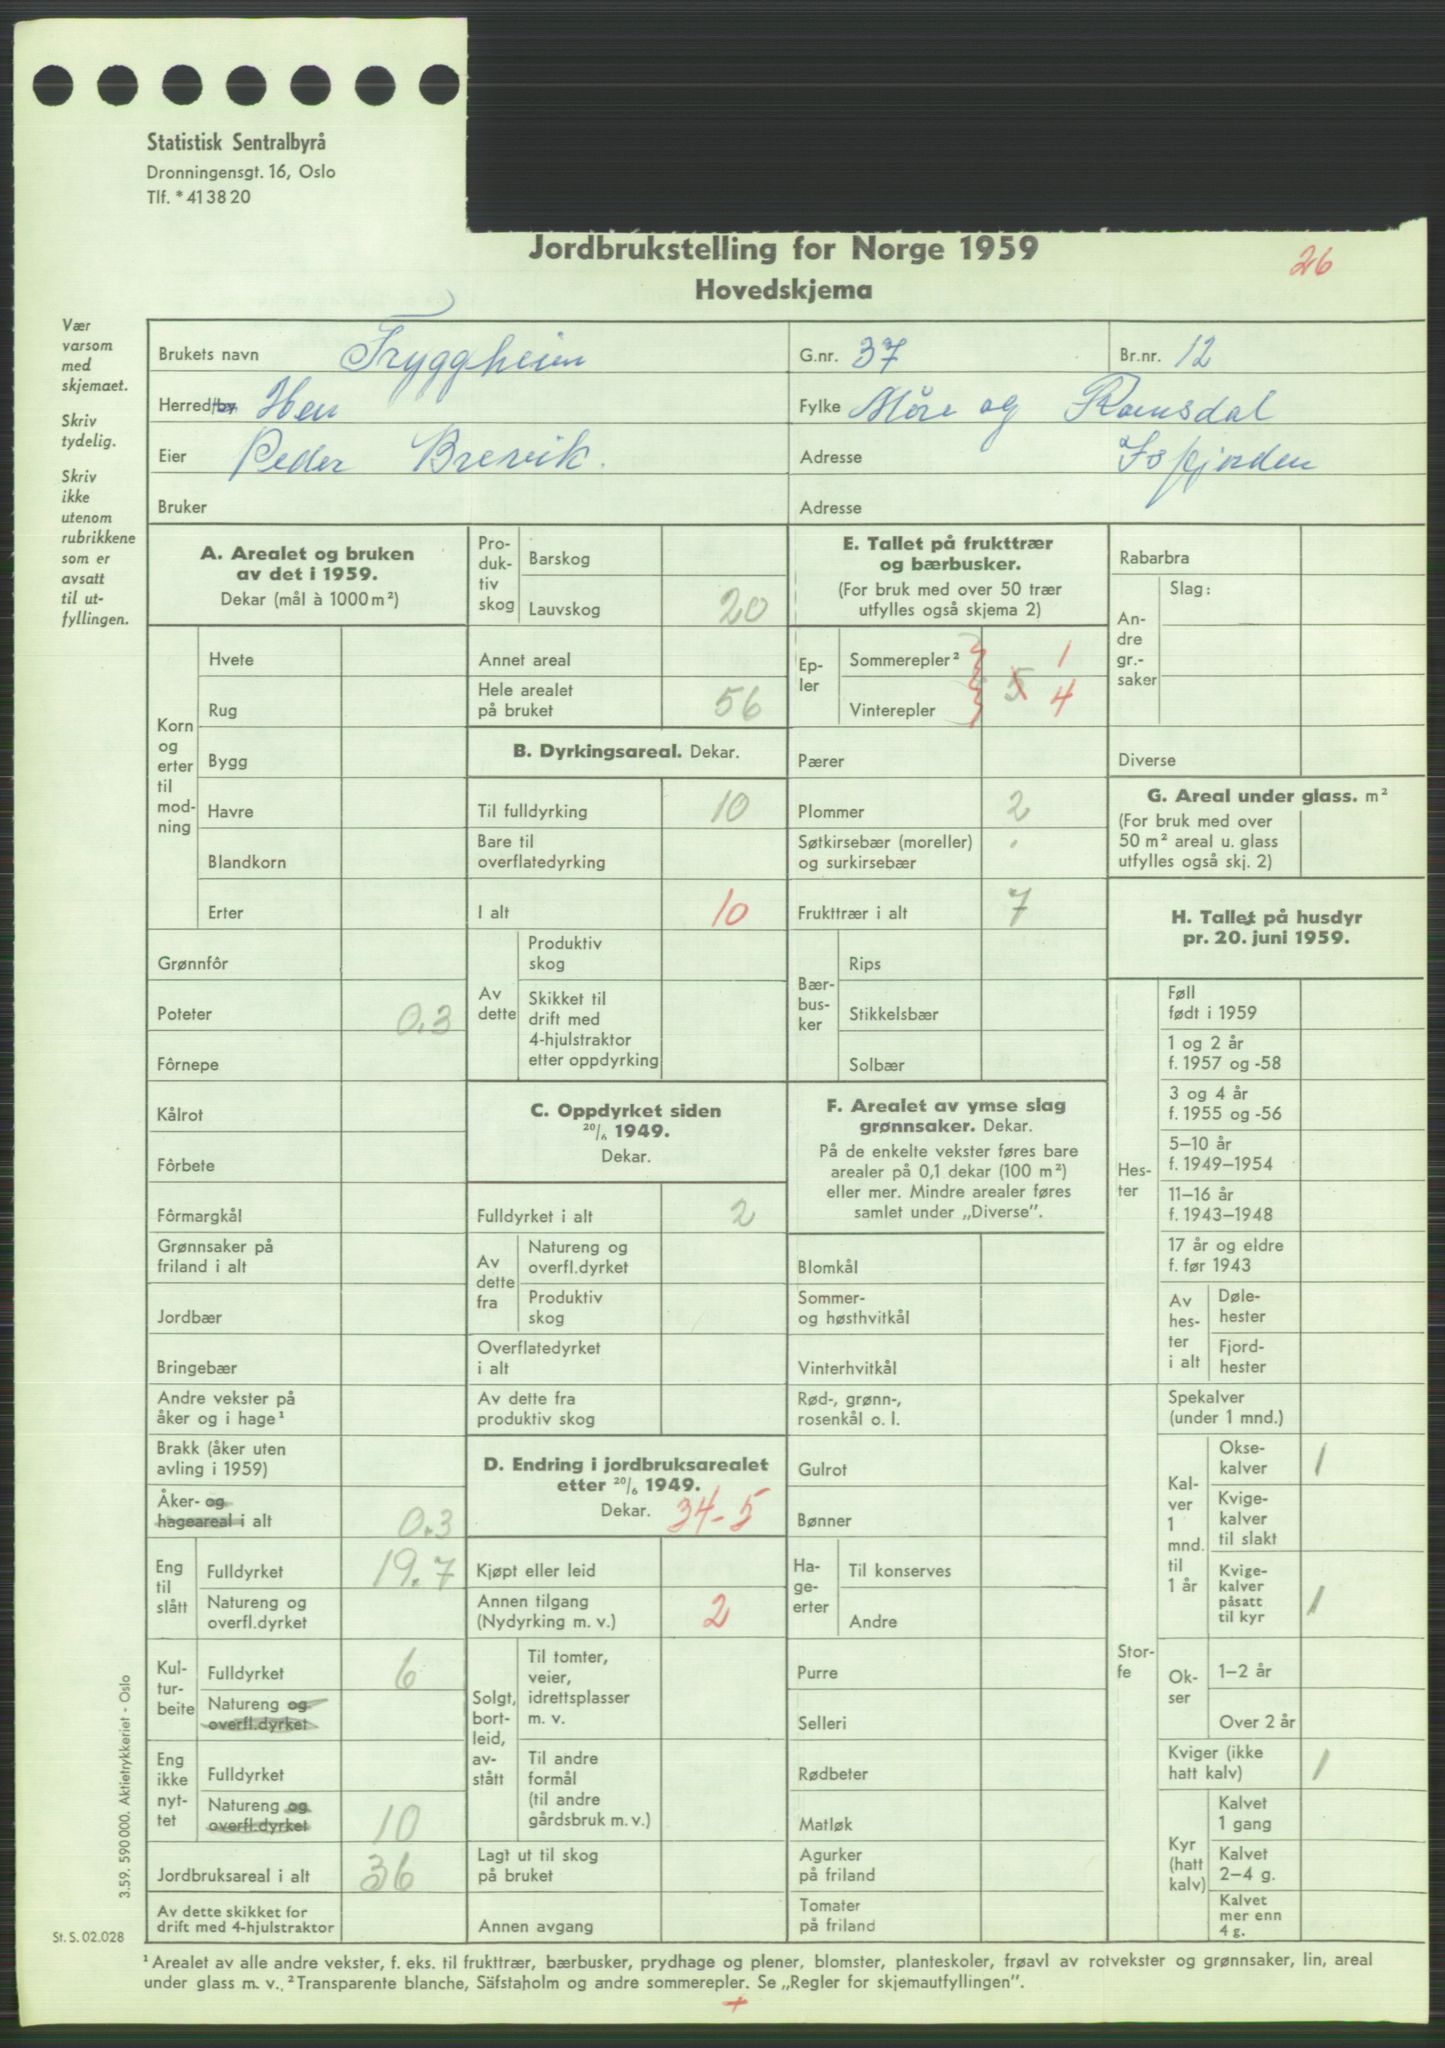 Statistisk Sentralbyrå
Dronningensgt. 16, Oslo
Tlf. * 41 38 20
Jordbrukstelling for Norge 1959
26
Hovedskjema
Vær
varsom
med
skjemaet.
Skriv
tydelig.
Skriv
ikke
utenom
rubrikkene
som er
avsatt
til ut-
fyllingen.
Brukets navn Tryggheim G.nr. 37 Br.nr. 12
Herred/by Hen Fylke Møre og Romsdal
Eier Peder Brevik. Adresse Isfjorden
Bruker Adresse
A. Arealet og bruken
av det i 1959.
Dekar (mål à 1000 m²)
Korn
og
erter
til
mod-
ning
Hvete
Rug
Bygg
Havre
Blandkorn
Erter
Grønnfôr
Poteter 0.3
Fôrnepe
Kålrot
Fôrbete
Fôrmargkål
Grønnsaker på
friland i alt
Jordbær
Bringebær
Andre vekster på
åker og i hage¹
Brakk (åker uten
avling i 1959)
Åker- og
hageareal i alt 0.3
Eng
til
slått
Fulldyrket 19.7
Natureng og
overfl.dyrket
Kul-
tur-
beite
Fulldyrket 6
Natureng og
overfl.dyrket
Eng
ikke
nyt-
tet
Fulldyrket
Natureng og
overfl.dyrket 10
Jordbruksareal i alt 36
Av dette skikket for
drift med 4-hjulstraktor
Pro-
duk-
tiv
skog
Barskog
Lauvskog 20
Annet areal
Hele arealet
på bruket 56
B. Dyrkingsareal. Dekar.
Til fulldyrking 10
Bare til
overflatedyrking
I alt 10
Av
dette
Produktiv
skog
Skikket til
drift med
4-hjulstraktor
etter oppdyrking
C. Oppdyrket siden
20/6 1949.
Dekar.
Fulldyrket i alt 2
Av
dette
fra
Natureng og
overfl.dyrket
Produktiv
skog
Overflatedyrket
i alt
Av dette fra
produktiv skog
D. Endring i jordbruksarealet
etter 20/6 1949.
Dekar. 34-5
Kjøpt eller leid
Annen tilgang
(Nydyrking m. v.) 2
Solgt,
bort-
leid,
av-
stått
Til tomter,
veier,
idrettsplasser
m. v.
Til andre
formål
(til andre
gårdsbruk m. v.)
Lagt ut til skog
på bruket
Annen avgang
E. Tallet på frukttrær
og bærbusker.
(For bruk med over 50 trær
utfylles også skjema 2)
Ep-
ler
Sommerepler² 1
5
Vinterepler 4
Pærer
Plommer 2
Søtkirsebær (moreller)
og surkirsebær
Frukttrær i alt 7
Bær-
bus-
ker
Rips
Stikkelsbær
Solbær
F. Arealet av ymse slag
grønnsaker. Dekar.
På de enkelte vekster føres bare
arealer på 0,1 dekar (100 m²)
eller mer. Mindre arealer føres
samlet under „Diverse".
Blomkål
Sommer-
og høsthvitkål
Vinterhvitkål
Rød-, grønn-,
rosenkål o. l.
Gulrot
Bønner
Ha-
ge-
erter
Til konserves
Andre
Purre
Selleri
Rødbeter
Matløk
Agurker
på friland
Tomater
på friland
Rabarbra
An-
dre
gr.-
saker
Slag:
Diverse
G. Areal under glass. m²
(For bruk med over
50 m² areal u. glass
utfylles også skj. 2)
H. Tallet på husdyr
pr. 20. juni 1959.
Hes-
ter
Føll
født i 1959
1 og 2 år
f. 1957 og -58
3 og 4 år
f. 1955 og -56
5–10 år
f. 1949–1954
11–16 år
f. 1943–1948
17 år og eldre
f. før 1943
Av
hes-
ter
i alt
Døle-
hester
Fjord-
hester
Stor-
fe
Spekalver
(under 1 mnd.)
Kal-
ver
1
mnd.
til
1 år
Okse-
kalver 1
Kvige-
kalver
til slakt
Kvige-
kalver
påsatt
til kyr 1
Ok-
ser
1–2 år
Over 2 år
Kviger (ikke
hatt kalv) 1
Kyr
(hatt
kalv)
Kalvet
1 gang
Kalvet
2–4 g.
Kalvet
mer enn
4 g.
3.59. 590 000. Aktietrykkeriet - Oslo
St. S. 02.028
¹ Arealet av alle andre vekster, f. eks. til frukttrær, bærbusker, prydhage og plener, blomster, planteskoler, frøavl av rotvekster og grønnsaker, lin, areal
under glass m. v., ² Transparente blanche, Säfstaholm og andre sommerepler. Se „Regler for skjemautfyllingen".
+